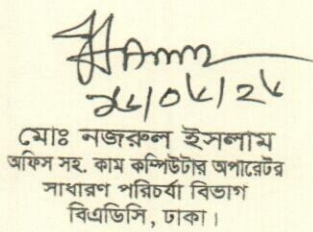 মোঃ নজরুল ইসলাম
অফিস সহ. কাম কম্পিউটার অপারেটর
সাধারণ পরিচর্যা বিভাগ
বিএডিসি, ঢাকা।